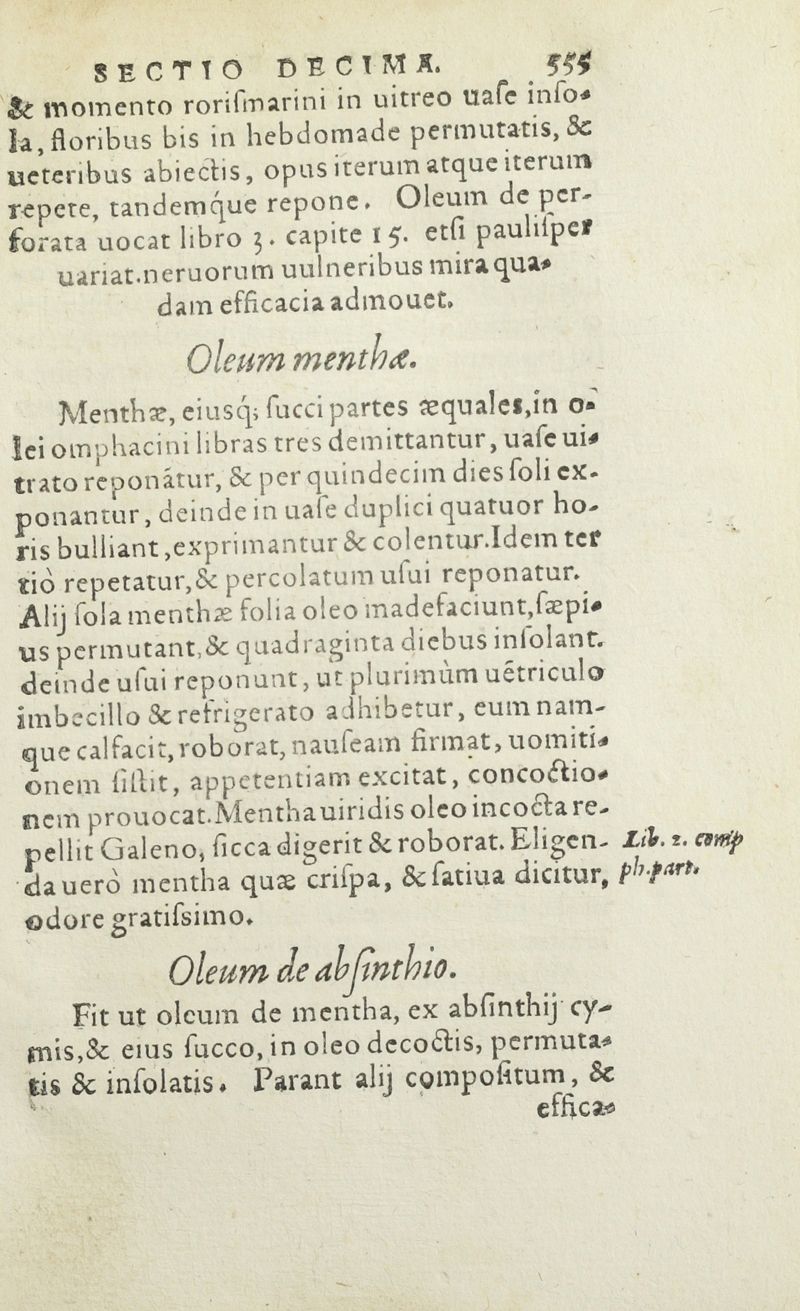 SECTIO DECIMA. 555
& momento roriſmarini in uitreo uaſe inſo-
la, floribus bis in hebdomade permutatis, &
ueteribus abiectis, opus iterum atque iterum
repete, tandemq́ue repone. Oleum de per-
forata uocat libro 3. capite 15. etſi pauliſper
uariat. neruorum uulneribus mira qua-
dam efficacia admouet.
Oleum menthæ.
Menthæ, eiusq́; ſucci partes æquales, in o-
lei omphacini libras tres demittantur, uaſe ui-
trato reponátur, & per quindecim dies ſoli ex-
ponantur, deinde in uaſe duplici quatuor ho-
ris bulliant, exprimantur & colentur. Idem ter
tiò repetatur, & percolatum uſui reponatur.
Alij ſola menthæ folia oleo madefaciunt, ſæpi-
us permutant, & quadraginta diebus inſolant.
deinde uſui reponunt, ut plurimùm uẽtriculo
imbecillo & refrigerato adhibetur, eum nam-
que calfacit, roborat, nauſeam firmat, uomiti-
onem ſiſtit, appetentiam excitat, concoctio-
nem prouocat. Mentha uiridis oleo incocta re-
pellit Galeno, ſicca digerit & roborat. Eligen-
da uerò mentha quæ criſpa, & ſatiua dicitur,
odore gratiſsimo.
Lib. 2. comp
ph. part.
Oleum de abſinthio.
Fit ut oleum de mentha, ex abſinthij cy-
mis, & eius ſucco, in oleo decoctis, permuta-
tis & inſolatis. Parant alij compoſitum, &
effica-